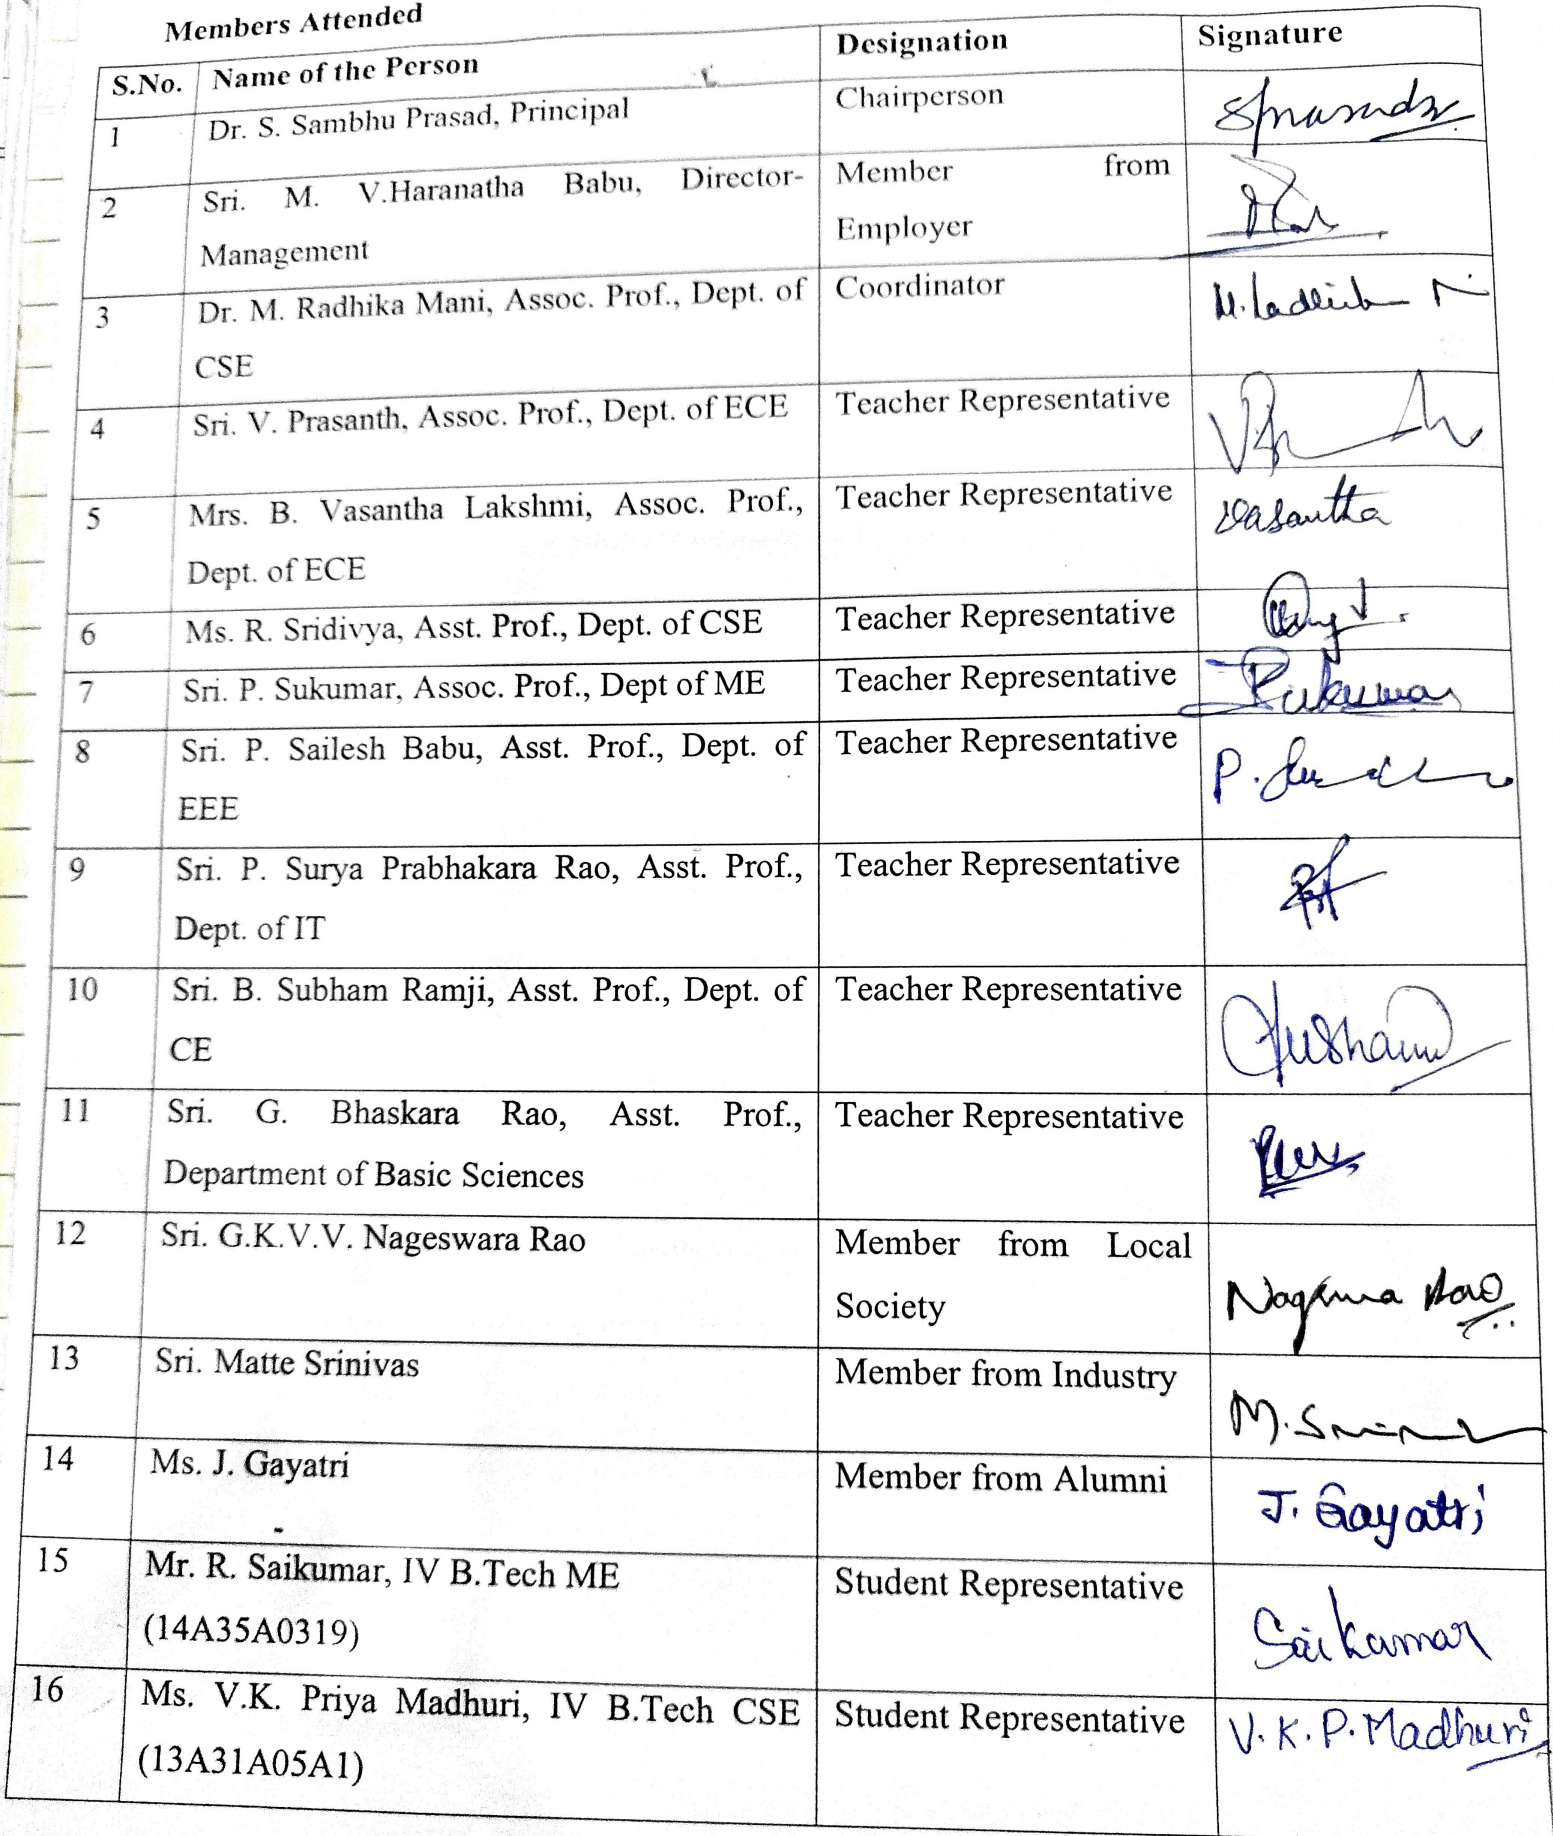 Members Attended
S.No. Name of the Person Designation Signature
1 Dr. S. Sambhu Prasad, Principal Chairperson
2 Sri. M. V.Haranatha Babu, Director- Member from
Management Employer
3 Dr. M. Radhika Mani, Assoc. Prof., Dept. of Coordinator
CSE
4 Sri. V. Prasanth, Assoc. Prof., Dept. of ECE Teacher Representative
5 Mrs. B. Vasantha Lakshmi, Assoc. Prof., Teacher Representative Vasantha
Dept. of ECE
6 Ms. R. Sridivya, Asst. Prof., Dept. of CSE Teacher Representative
7 Sri. P. Sukumar, Assoc. Prof., Dept of ME Teacher Representative
8 Sri. P. Sailesh Babu, Asst. Prof., Dept. of Teacher Representative P.
EEE
9 Sri. P. Surya Prabhakara Rao, Asst. Prof., Teacher Representative
Dept. of IT
10 Sri. B. Subham Ramji, Asst. Prof., Dept. of Teacher Representative
CE
11 Sri. G. Bhaskara Rao, Asst. Prof., Teacher Representative
Department of Basic Sciences
12 Sri. G.K.V.V. Nageswara Rao Member from Local
Society Rao
13 Sri. Matte Srinivas Member from Industry
M.
14 Ms. J. Gayatri Member from Alumni
J. Gayatri
15 Mr. R. Saikumar, IV B.Tech ME Student Representative
(14A35A0319) Saikumar
16 Ms. V.K. Priya Madhuri, IV B.Tech CSE Student Representative V.K.P.Madhuri
(13A31A05A1)